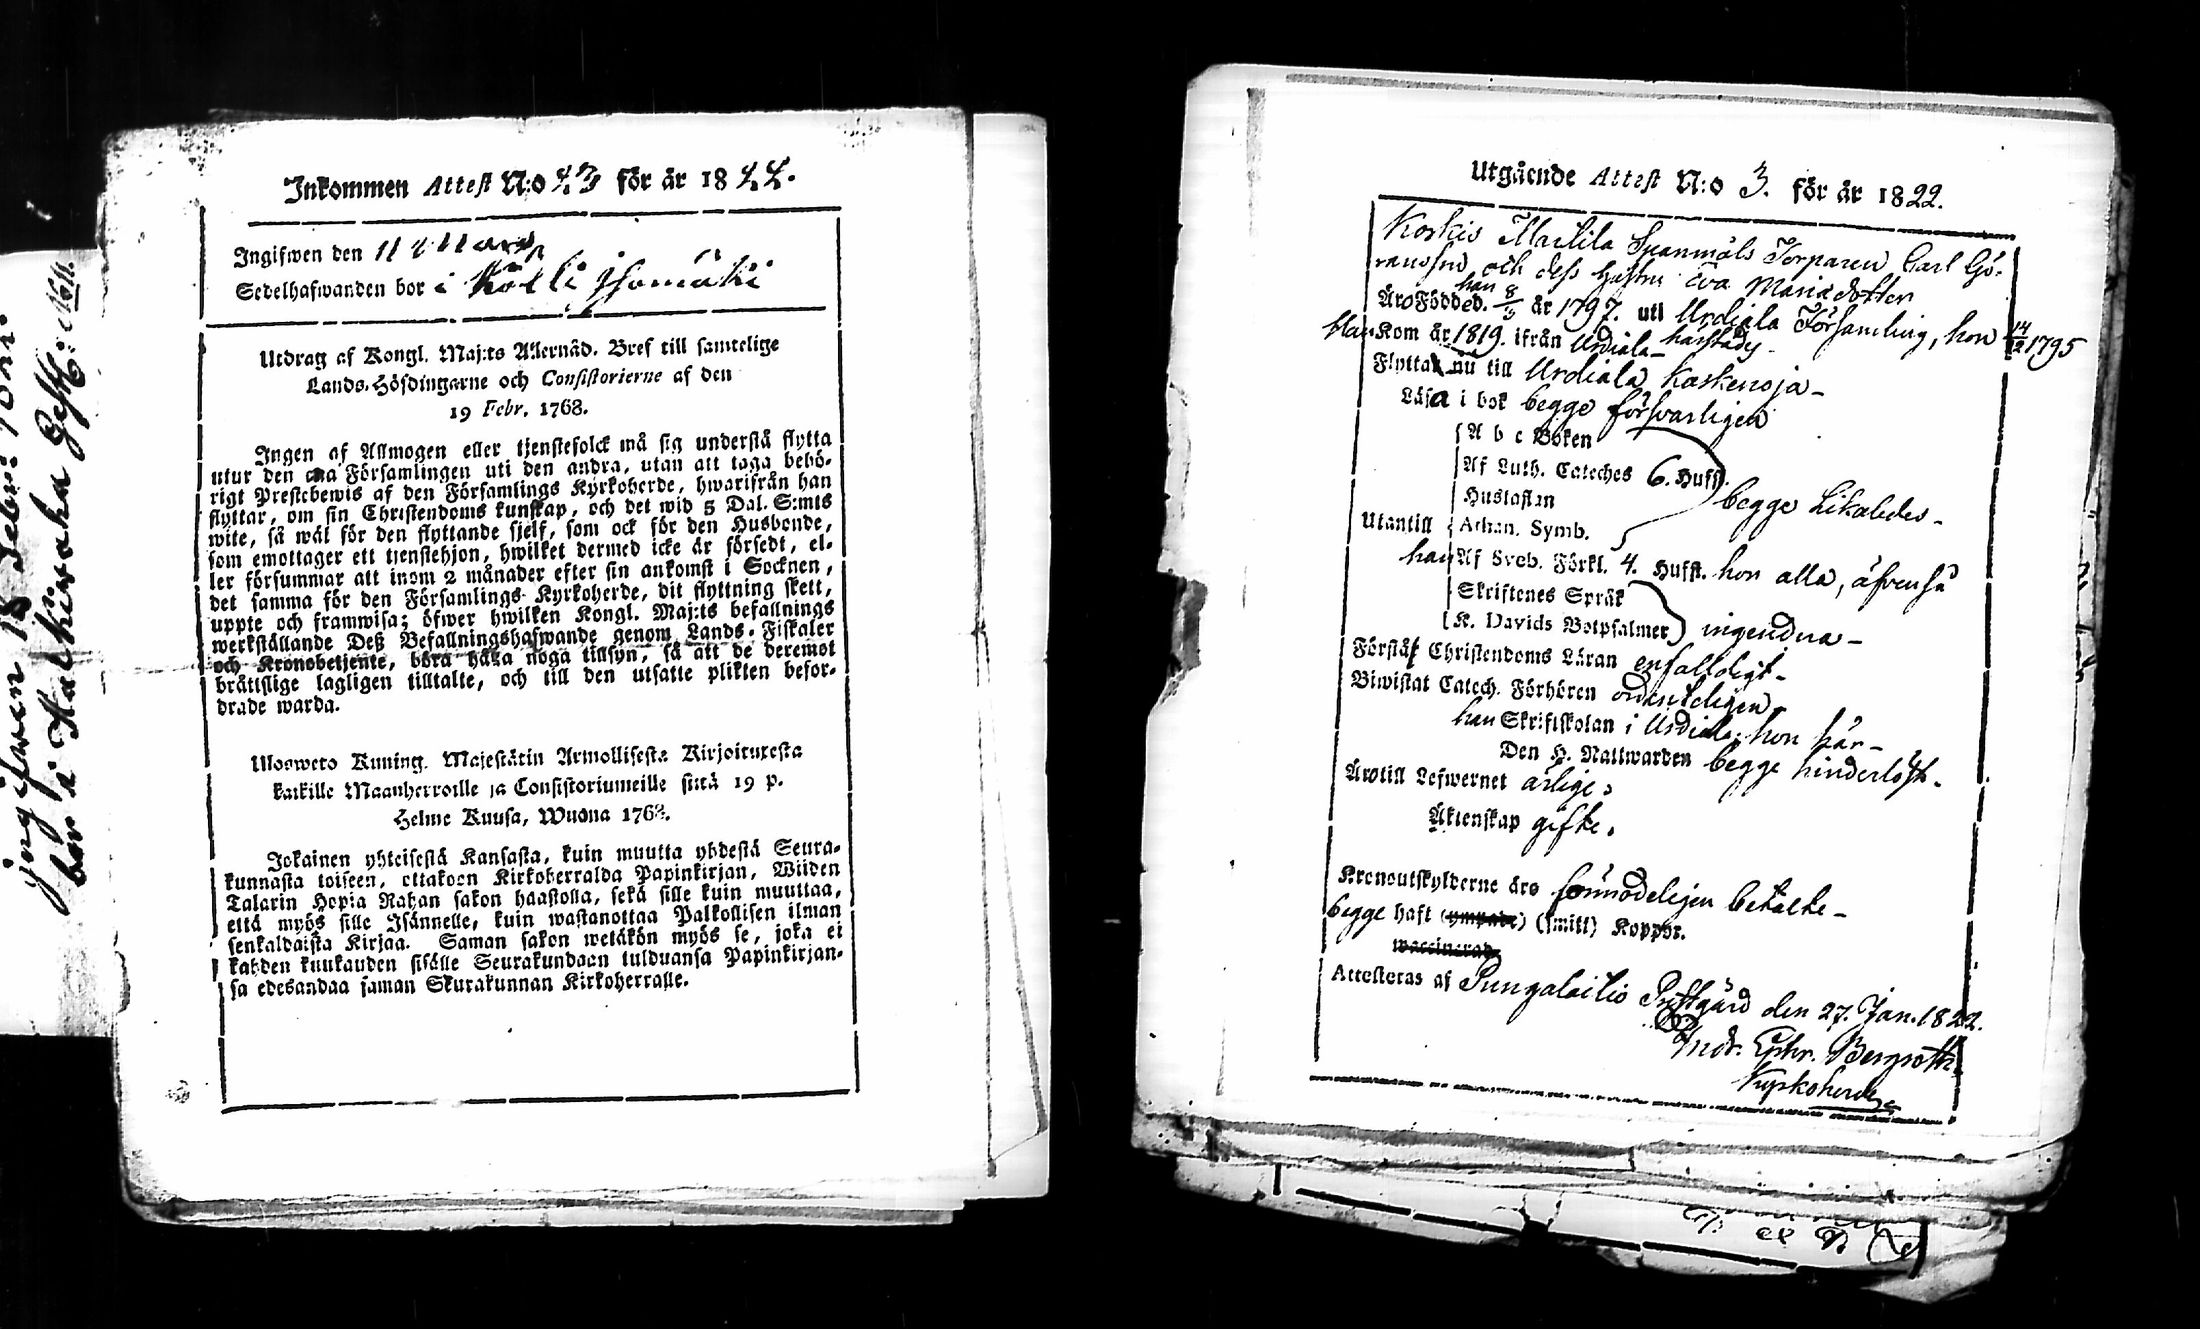 ingifwen 18
bor i
Inkommen Attest N:o 23 för år 1822.
Ingifwen den 11 Mars
Sedelhafwanden bor i Kolli Isomäki
Utdrag af Kongl. Maj:ts Allernåd. Bref till samtelige
Lands-Höfdingarne och Consistorierne af den
19 Febr. 1768.
Ingen af Allmogen eller tjenstefolck må sig understå flytta
utur den ena Församlingen uti den andra, utan att taga behö-
rigt Prestebewis af den Församlings Kyrkoherde, hwarifrån han
flyttar, om sin Christendoms kunskap, och det wid 5 Dal. S:mts
wite, så wäl för den flyttande sjelf, som ock för den Husbonde,
som emottager ett tjenstehjon, hwilket dermed icke är försedt, el-
ler försummar att inom 2 månader efter sin ankomst i Socknen,
det samma för den Församlings Kyrkoherde, dit flyttning skett,
uppte och framwisa; öfwer hwilken Kongl. Maj:ts befallnings
werkställande Deß Befallningshafwande genom Lands-Fiskaler
och Kronobetjente, böra hafwa noga tillsyn, så att de deremot
bråttslige lagligen tilltalte, och till den utsatte plikten befor-
drade warda.
Uloswero Kuning. Majestätin Armollisesta Kirjoituxesta
kaikille Maanherroille ja Consistoriumeille siitä 19 p.
Helme Kuusa, Wuona 1768.
Jokainen yhteisestä Kansasta, kuin muutta yhdestä Seura-
kunnasta toiseen, ottakoon Kirkoherralda Papinkirjan, Wiiden
Talarin Hopia Rahan sakon haastolla, sekä sille kuin muuttaa,
että myös sille Isännelle, kuin wastanottaa Palkollisen ilman
senkaldaista Kirjaa. Saman sakon wetäkön myös se, joka ei
kahden kuukauden sisälle Seurakundaan tulduansa Papinkirjan-
sa edesandaa saman Skurakunnan Kirkoherralle.
Utgående Attest N:o 3. för år 1822.
Koskis Marttila Spanmåls Torparen Carl Gö-
ransson och dess hustru Eva Mariädotter
Äro Födde d. han 8 år 1797. uti Urdiala Församling, hon 14/12 1795
Kom år 1819. ifrån Urdiala
Flytta nu till Urdiala Kaskenoja-
Läsa i bok begge försvarligen
A b c Boken
Af Luth. Cateches 6. Hufst.
Hustaflan
begge Likaledes-
Utantill
Athan. Symb.
han Af Sveb. Förkl. 4. Hufst. hon alla, äfvenså
Skriftenes Språk
K. Davids Botpsalmer
ingendera-
Förstå Christendoms Läran enfaldigt-
Biwistat Catech. Förhören ordenteligen,
han Skriftskolan i Urdiala, hon här-
Den H. Nattwarden begge hinderlöst-
Äro till Lefwernet ärlige,
Äktenskap gifte,
Kronoutskylderne äro förmodeligen betalte-
begge haft (ympade) (smitt) Koppor.
waccinerade
Attesteras af Pungalaitio Prestgård den 27. Jan. 1822.
And. Ephr. Bergroth
Kyrkoherde